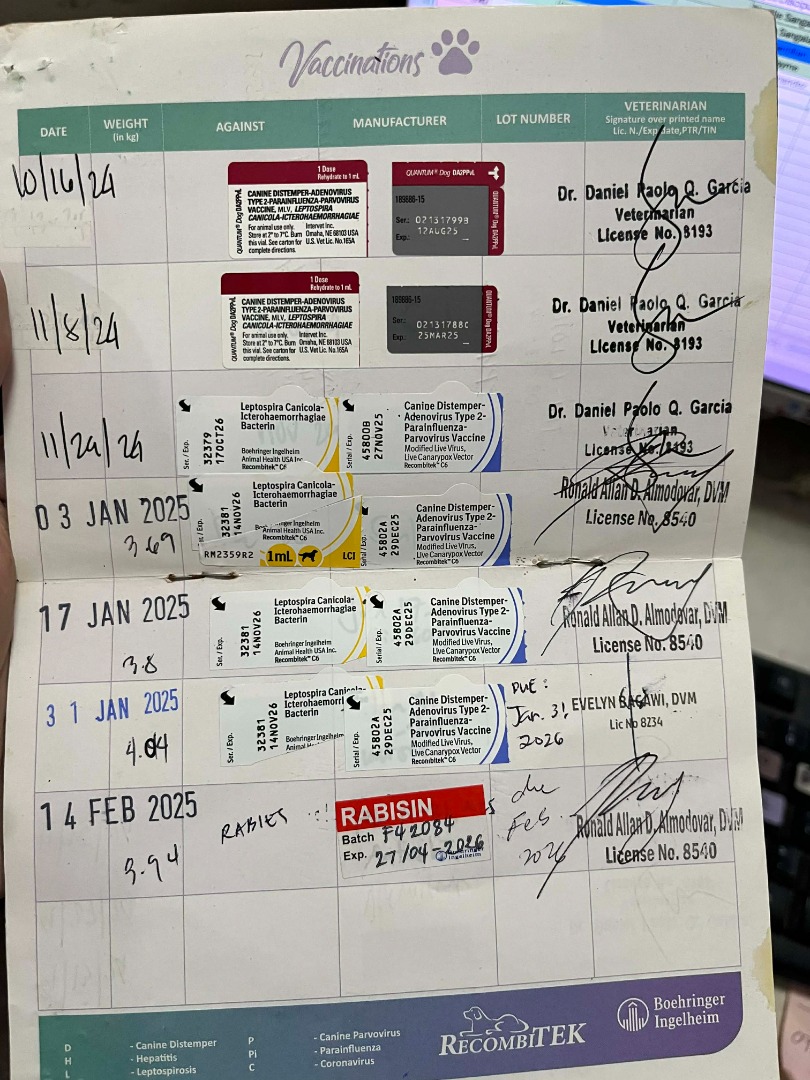 Vaccinations
DATE
WEIGHT
(in kg)
AGAINST
MANUFACTURER
LOT NUMBER
VETERINARIAN
Signature over printed name
Lic. N./Exp.date,PTR/TIN
10/16/24
QUANTUM® Dog DA2PPvL
1 Dose
Rehydrate to 1 mL
CANINE DISTEMPER-ADENOVIRUS
TYPE 2-PARAINFLUENZA-PARVOVIRUS
VACCINE, MLV, LEPTOSPIRA
CANICOLA-ICTEROHAEMORRHAGIAE
For animal use only. Intervet Inc.
Store at 2° to 7°C. Burn Omaha, NE 68103 USA
this vial. See carton for U.S. Vet Lic. No.165A
complete directions.
QUANTUM® Dog DA2PPvL
Ser.: 02131799B
Exp.: 12AUG25
Dr. Daniel Paolo Q. Garcia
Veterinarian
License No. 8193
11/8/24
QUANTUM® Dog DA2PPvL
1 Dose
Rehydrate to 1 mL
CANINE DISTEMPER-ADENOVIRUS
TYPE 2-PARAINFLUENZA-PARVOVIRUS
VACCINE, MLV, LEPTOSPIRA
CANICOLA-ICTEROHAEMORRHAGIAE
For animal use only. Intervet Inc.
Store at 2° to 7°C. Burn Omaha, NE 68103 USA
this vial. See carton for U.S. Vet Lic. No.165A
complete directions.
Ser.: 02131788C
Exp.: 25MAR25
Dr. Daniel Paolo Q. Garcia
Veterinarian
License No. 8193
Ser. / Exp.
32379
17OCT26
Leptospira Canicola-
Icterohaemorrhagiae
Bacterin
Boehringer Ingelheim
Animal Health USA Inc.
Recombitek™ C6
Serial / Exp.
45800B
27NOV25
Canine Distemper-
Adenovirus Type 2-
Parainfluenza-
Parvovirus Vaccine
Modified Live Virus,
Live Canarypox Vector
Recombitek™ C6
Dr. Daniel Paolo Q. Garcia
Veterinarian
License No. 8193
03 JAN 2025
3.69
Ser. / Exp.
32381
14NOV26
Leptospira Canicola-
Icterohaemorrhagiae
Bacterin
Boehringer Ingelheim
Animal Health USA Inc.
Recombitek™ C6
RM2359R2 1mL LCI
Serial / Exp.
45802A
29DEC25
Canine Distemper-
Adenovirus Type 2-
Parainfluenza-
Parvovirus Vaccine
Modified Live Virus,
Live Canarypox Vector
Recombitek™ C6
Ronald Allan D. Almodovar, DVM
License No. 8540
17 JAN 2025
3.8
Ser. / Exp.
32381
14NOV26
Leptospira Canicola-
Icterohaemorrhagiae
Bacterin
Boehringer Ingelheim
Animal Health USA Inc.
Recombitek™ C6
Serial / Exp.
45802A
29DEC25
Canine Distemper-
Adenovirus Type 2-
Parainfluenza-
Parvovirus Vaccine
Modified Live Virus,
Live Canarypox Vector
Recombitek™ C6
Ronald Allan D. Almodovar, DVM
License No. 8540
31 JAN 2025
Ser. / Exp.
32381
14NOV26
Leptospira
Icterohaemorr
Bacterin
Boehringer Ingelheim
Serial / Exp.
45802A
29DEC25
Canine Distemper-
Adenovirus Type 2-
Parainfluenza-
Parvovirus Vaccine
Modified Live Virus,
Live Canarypox Vector
Recombitek™ C6
DUE:
Jan. 31
2026
EVELYN DVM
Lic No 8234
14 FEB 2025
3.94
RABIES
RABISIN
Batch F42084
Exp. 27/04-2026
Boehringer
Ingelheim
due
Feb.
2026
Ronald Allan D. Almodovar, DVM
License No. 8540
D - Canine Distemper
H - Hepatitis
L - Leptospirosis
P - Canine Parvovirus
Pi - Parainfluenza
C - Coronavirus
RECOMBITEK
Boehringer
Ingelheim